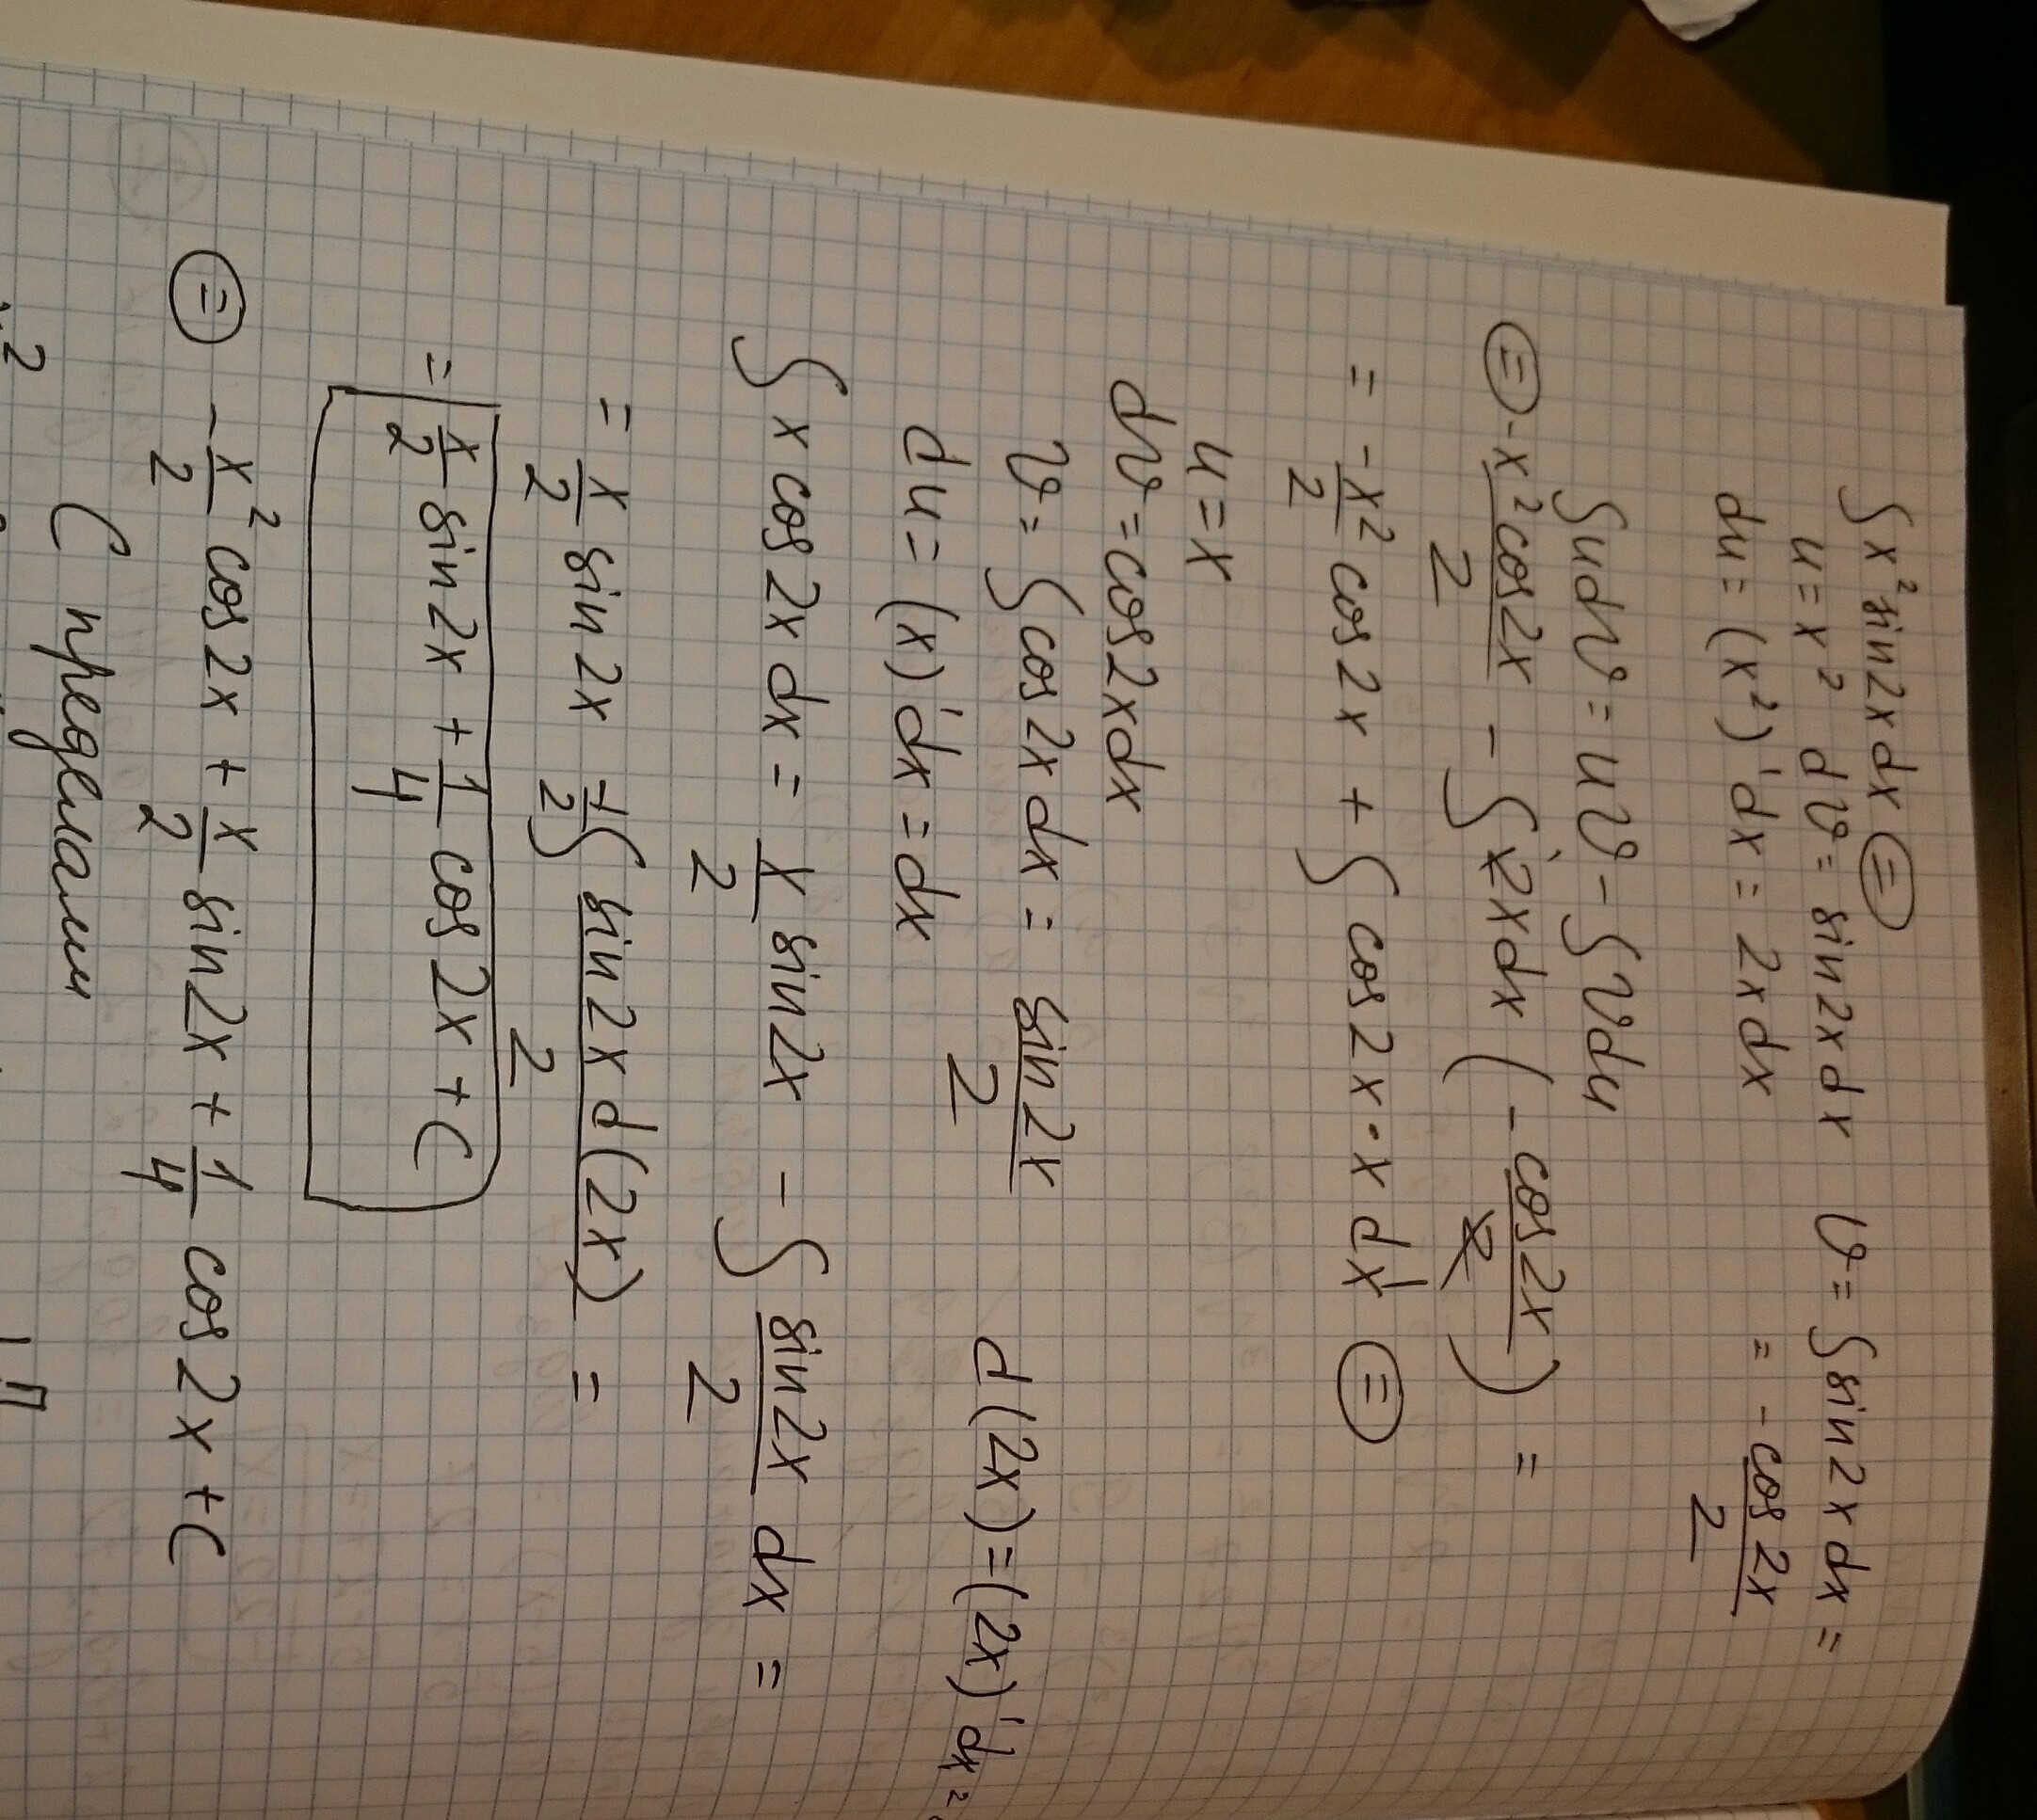 ∫ x² sin 2x dx ⊜
u = x² dv = sin 2x dx v = ∫ sin 2x dx =
du = (x²)' dx = 2x dx = - cos 2x / 2
∫ u dv = uv - ∫ v du
⊜ - x² cos 2x / 2 - ∫ 2x dx ( - cos 2x / 2 ) =
= - x²/2 cos 2x + ∫ cos 2x · x dx ⊜
u = x
dv = cos 2x dx
v = ∫ cos 2x dx = sin 2x / 2
du = (x)' dx = dx d(2x) = (2x)' dx =
∫ x cos 2x dx = x/2 sin 2x - ∫ sin 2x / 2 dx =
= x/2 sin 2x - 1/2 ∫ sin 2x d(2x) / 2 =
= x/2 sin 2x + 1/4 cos 2x + C
⊜ - x²/2 cos 2x + x/2 sin 2x + 1/4 cos 2x + C
С пределами